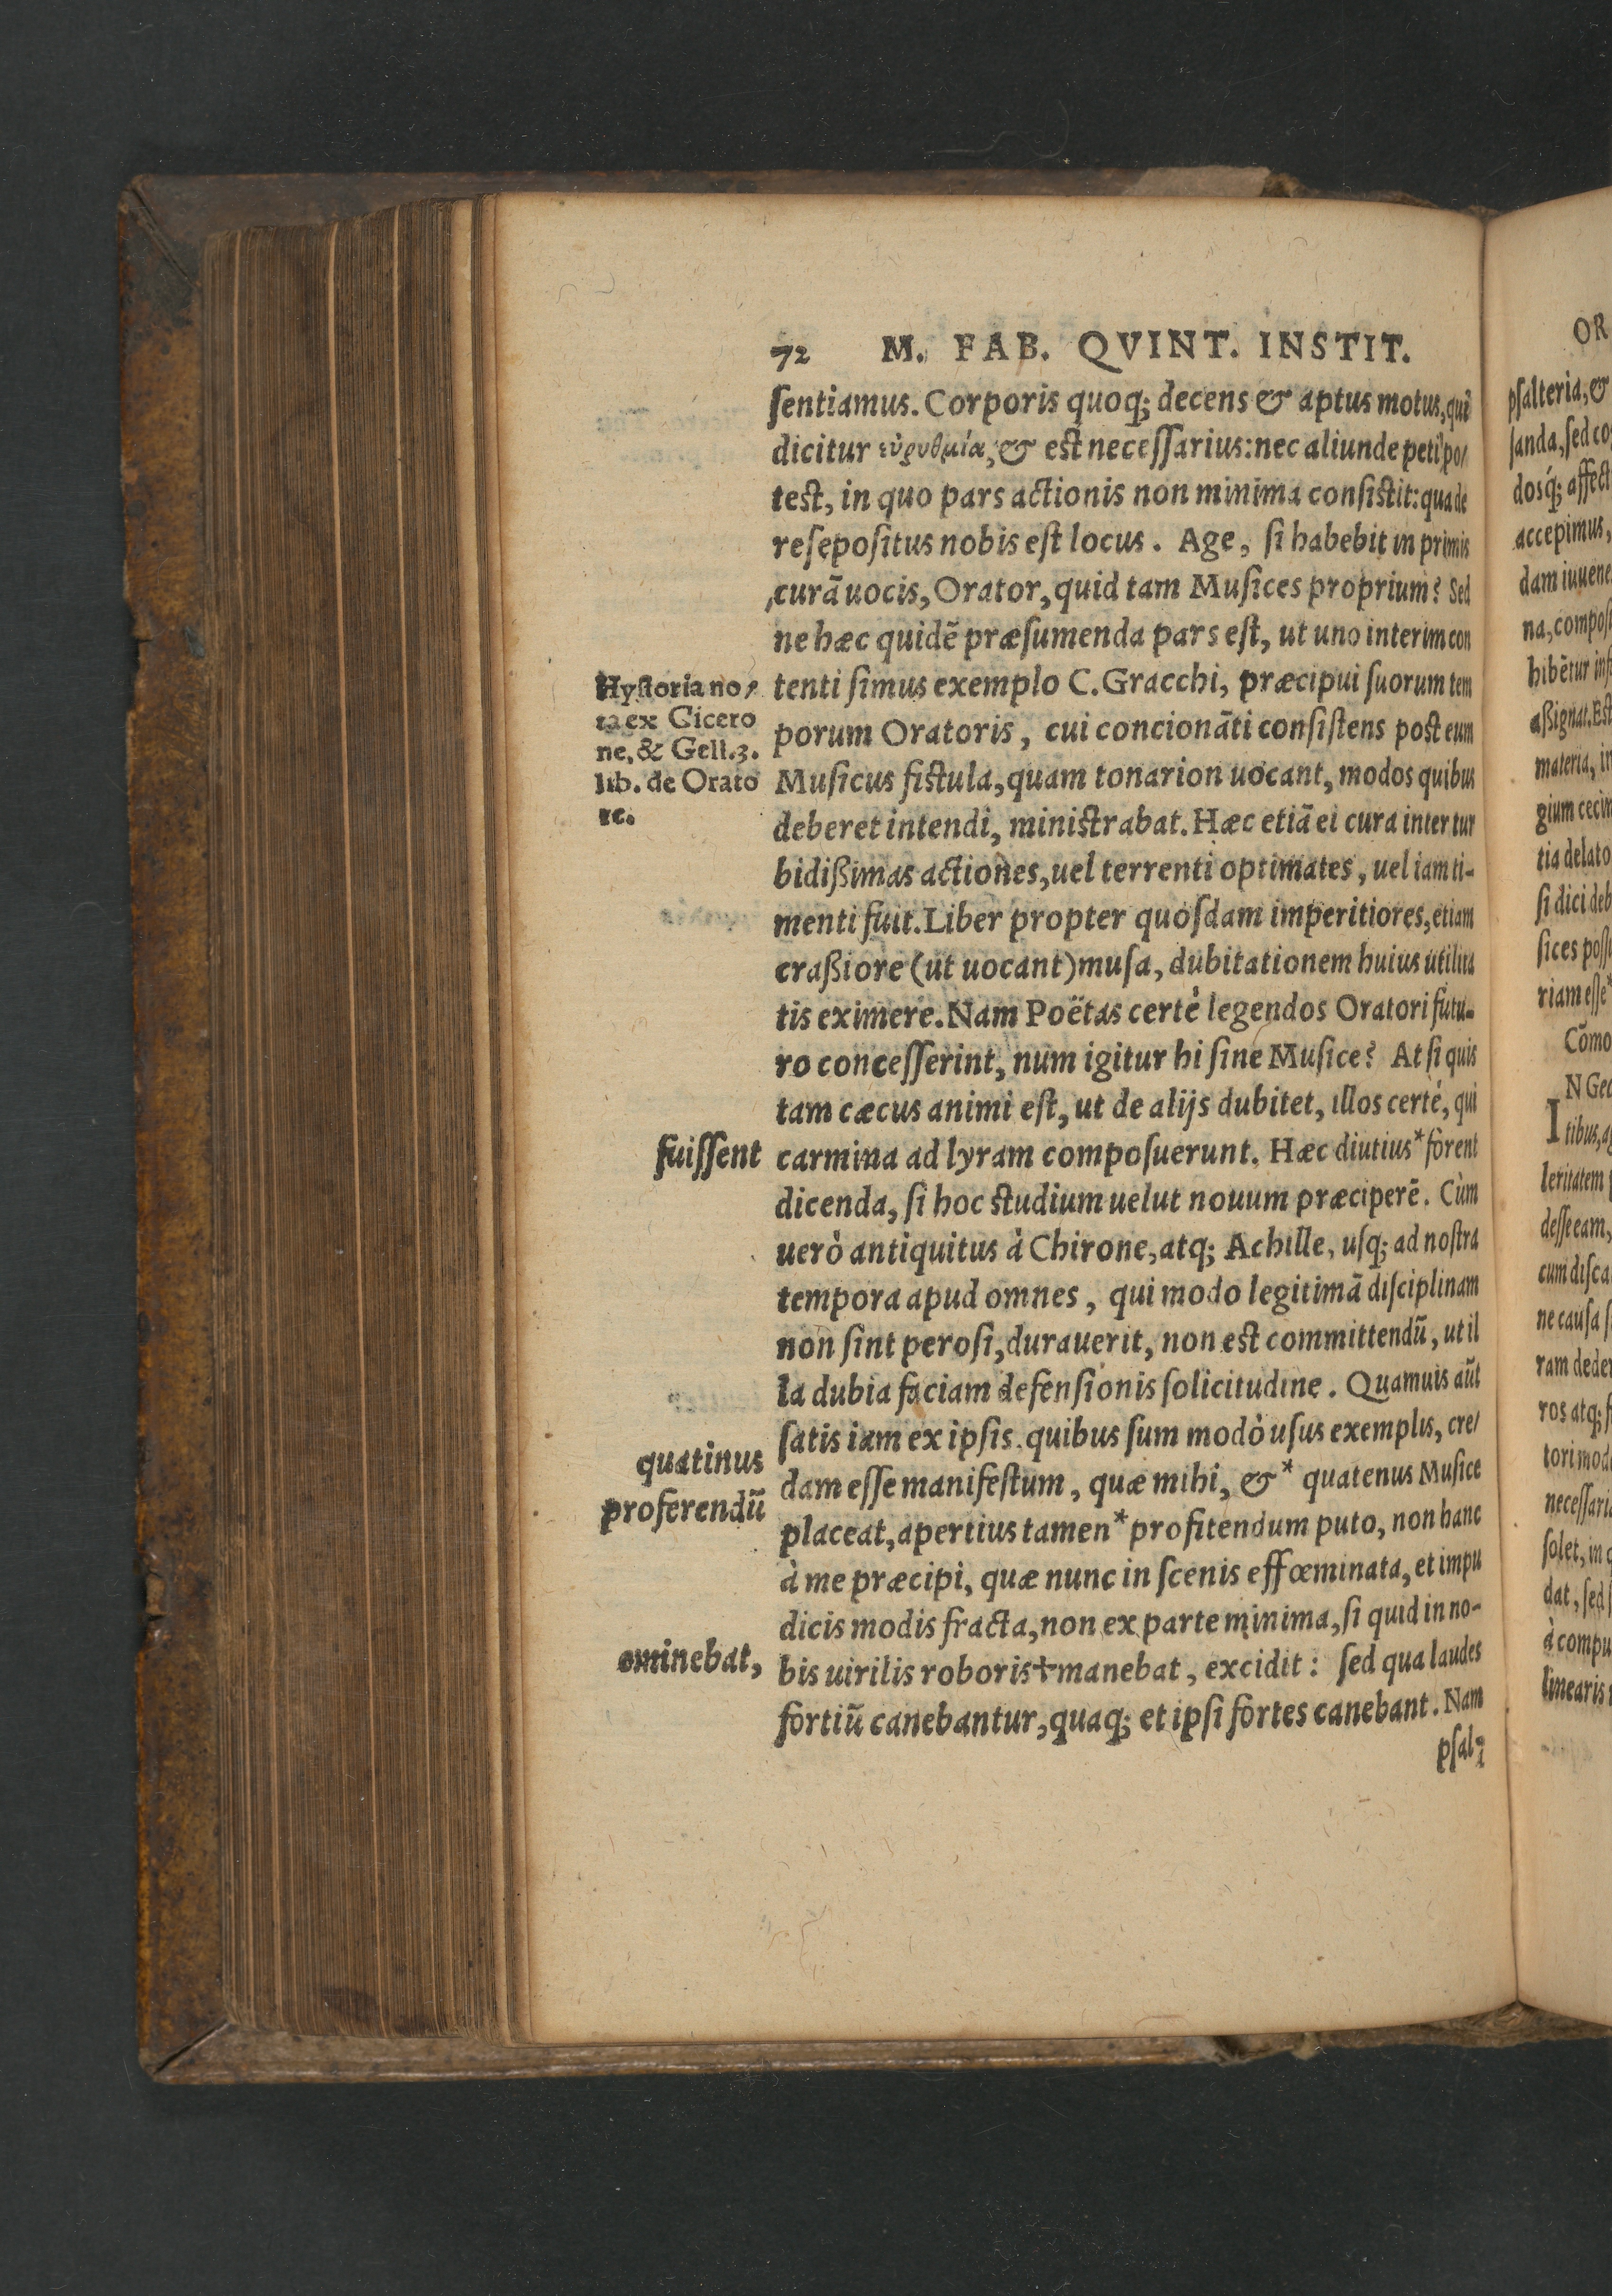 72 M. FAB. QVINT. INSTIT.
ſentiamus. Corporis quoq; decens & aptus motus, qui
dicitur εὐρυθμία, & est neceſſarius: nec aliunde peti po/
test, in quo pars actionis non minima conſistit: qua de
reſępoſitus nobis eſt locus. Age, ſi habebit in primis
curã uocis, Orator, quid tam Muſices proprium? Sed
ne hæc quidẽ præſumenda pars eſt, ut uno interim con
tenti ſimus exemplo C. Gracchi, præcipui ſuorum tem
porum Oratoris, cui concionãti conſiſtens post eum
Muſicus fistula, quam tonarion uocant, modos quibus
deberet intendi, ministrabat. Hæc etiã ei cura inter tur
bidißimas actiones, uel terrenti optimates, uel iam ti-
menti fuit. Liber propter quoſdam imperitiores, etiam
craßiore (ut uocant) muſa, dubitationem huius utilita
tis eximere. Nam Poëtas certè legendos Oratori futu-
ro conceſſerint, num igitur hi ſine Muſice? At ſi quis
tam cæcus animi eſt, ut de alijs dubitet, illos certè, qui
carmina ad lyram compoſuerunt. Hæc diutius* forent
dicenda, ſi hoc studium uelut nouum præciperẽ. Cùm
uerò antiquitus à Chirone, atq; Achille, uſq; ad noſtra
tempora apud omnes, qui modo legitimã diſciplinam
non ſint peroſi, durauerit, non est committendũ, ut il
la dubia faciam defenſionis ſolicitudine. Quamuis aũt
ſatis iam ex ipſis, quibus ſum modò uſus exemplis, cre/
dam eſſe manifeſtum, quæ mihi, &* quatenus Muſice
placeat, apertius tamen* profitendum puto, non hanc
à me præcipi, quæ nunc in ſcenis effœminata, et impu
dicis modis fracta, non ex parte minima, ſi quid in no-
bis uirilis roboris†manebat, excidit: ſed qua laudes
fortiũ canebantur, quaq; et ipſi fortes canebant. Nam
pſal/
Hyſtoria no/
ta ex Cicero
ne, & Gell. 3.
lib. de Orato
re.
fuiſſent
quatinus
proferendũ
eminebat,
OR
pſalteria, &
ſanda, ſed co
dosq́; affect
accepimus,
dam iuuene
na, compoſ
hibẽtur inſ
aßignat. Eſt
materia, in
gium cecin
tia delato
ſi dici deb
ſices poſſ
riam eſſe*
Cõmo
IN Geo
tibus, a
leritatem
deſſe eam,
cum diſca
ne cauſa ſ
ram deder
ros atq; ſ
tori mod
neceſſari
ſolet, in
dat, ſed
à compu
linearis